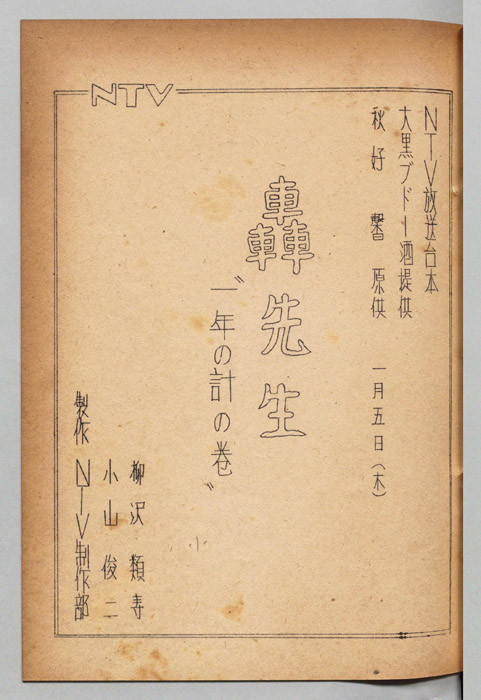 NTV
NTV放送台本
大黒ブドー酒提供
秋好馨 原供 一月五日(木)
轟先生
"一年の計の巻"
柳沢類寿
小山俊二
製作 NTV制作部